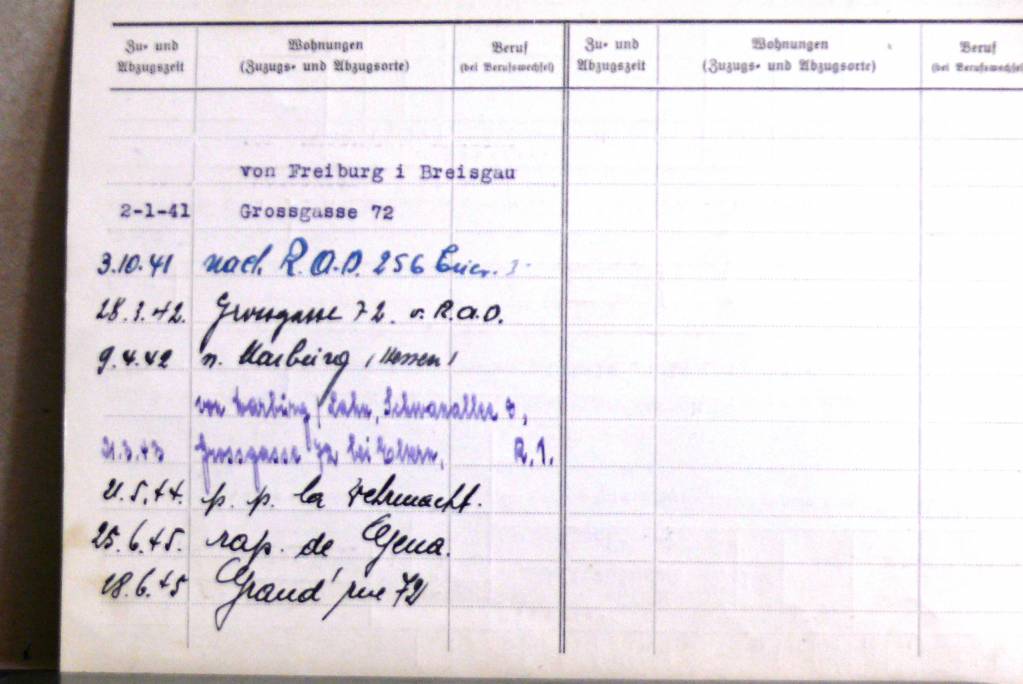 Zu- und Abzugszeit
Wohnungen (Zuzugs- und Abzugsorte)
Beruf (bei Berufswechsel)
Zu- und Abzugszeit
Wohnungen (Zuzugs- und Abzugsorte)
Beruf (bei Berufswechsel)
von Freiburg i Breisgau
2-1-41 Grossgasse 72
3.10.41 nach R.A.D. 256
28.3.42. Grossgasse 72. v. R.A.D.
9.4.42 n. Marburg (Hessen)
von Marburg/Lahn, Schwanallee
21.3.43 Grossgasse 72 bei Eltern, R.1.
21.5.44. p. p. la Wehrmacht.
25.6.45. rap. de Gena.
28.6.45 Grand'rue 72